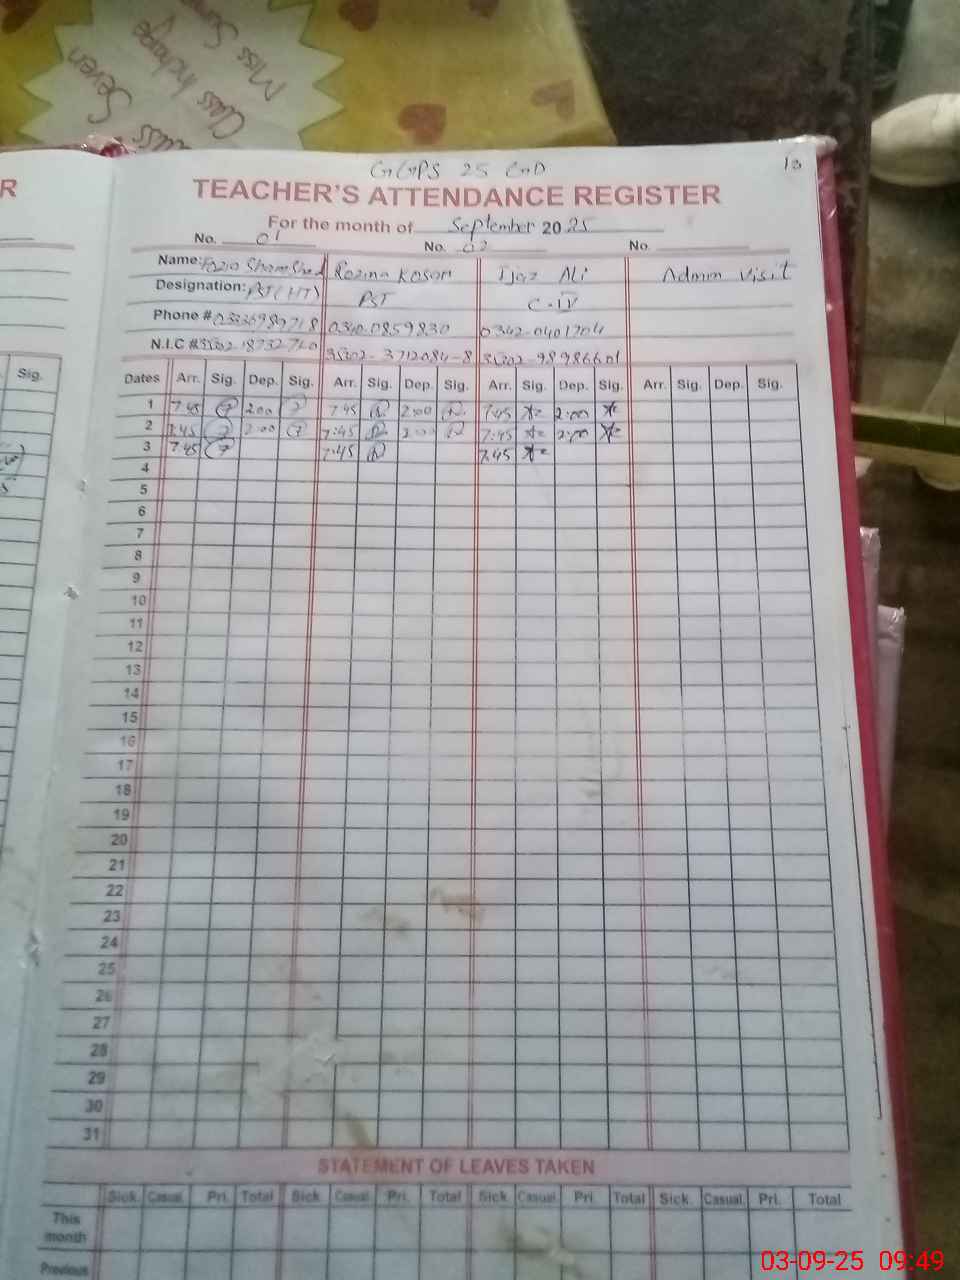 Miss Sumaira
Class Incharge
Class Seven
R
Sig.
13
GGPS 25 GD
TEACHER'S ATTENDANCE REGISTER
For the month of September 2025
No. 01 No. 02 No.
Name: Fozia Shamshad Rozina Kosar Ijaz Ali Admin Visit
Designation: PST(HT) PST C-IV
Phone # 03336989718 0340.0859830 0342-0401704
N.I.C # 35302-3712084-8
Dates Arr. Sig. Dep. Sig. Arr. Sig. Dep. Sig. Arr. Sig. Dep. Sig. Arr. Sig. Dep. Sig.
1 7:45 2:00 7:45 2:00 7:45 2:00
2 7:45 2:00 7:45 2:00 7:45 2:00
3 7:45 7:45 7:45
4
5
6
7
8
9
10
11
12
13
14
15
16
17
18
19
20
21
22
23
24
25
26
27
28
29
30
31
STATEMENT OF LEAVES TAKEN
Sick. Casual. Pri. Total Sick. Casual. Pri. Total Sick. Casual. Pri. Total Sick. Casual. Pri. Total
This
month
Previous
03-09-25 09:49